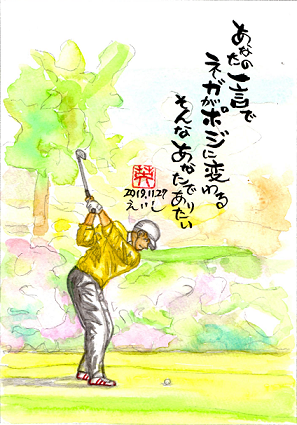 あなたの一言で
ネガがポジに変わる
そんなあなたでありたい
2019.11.27
えいし